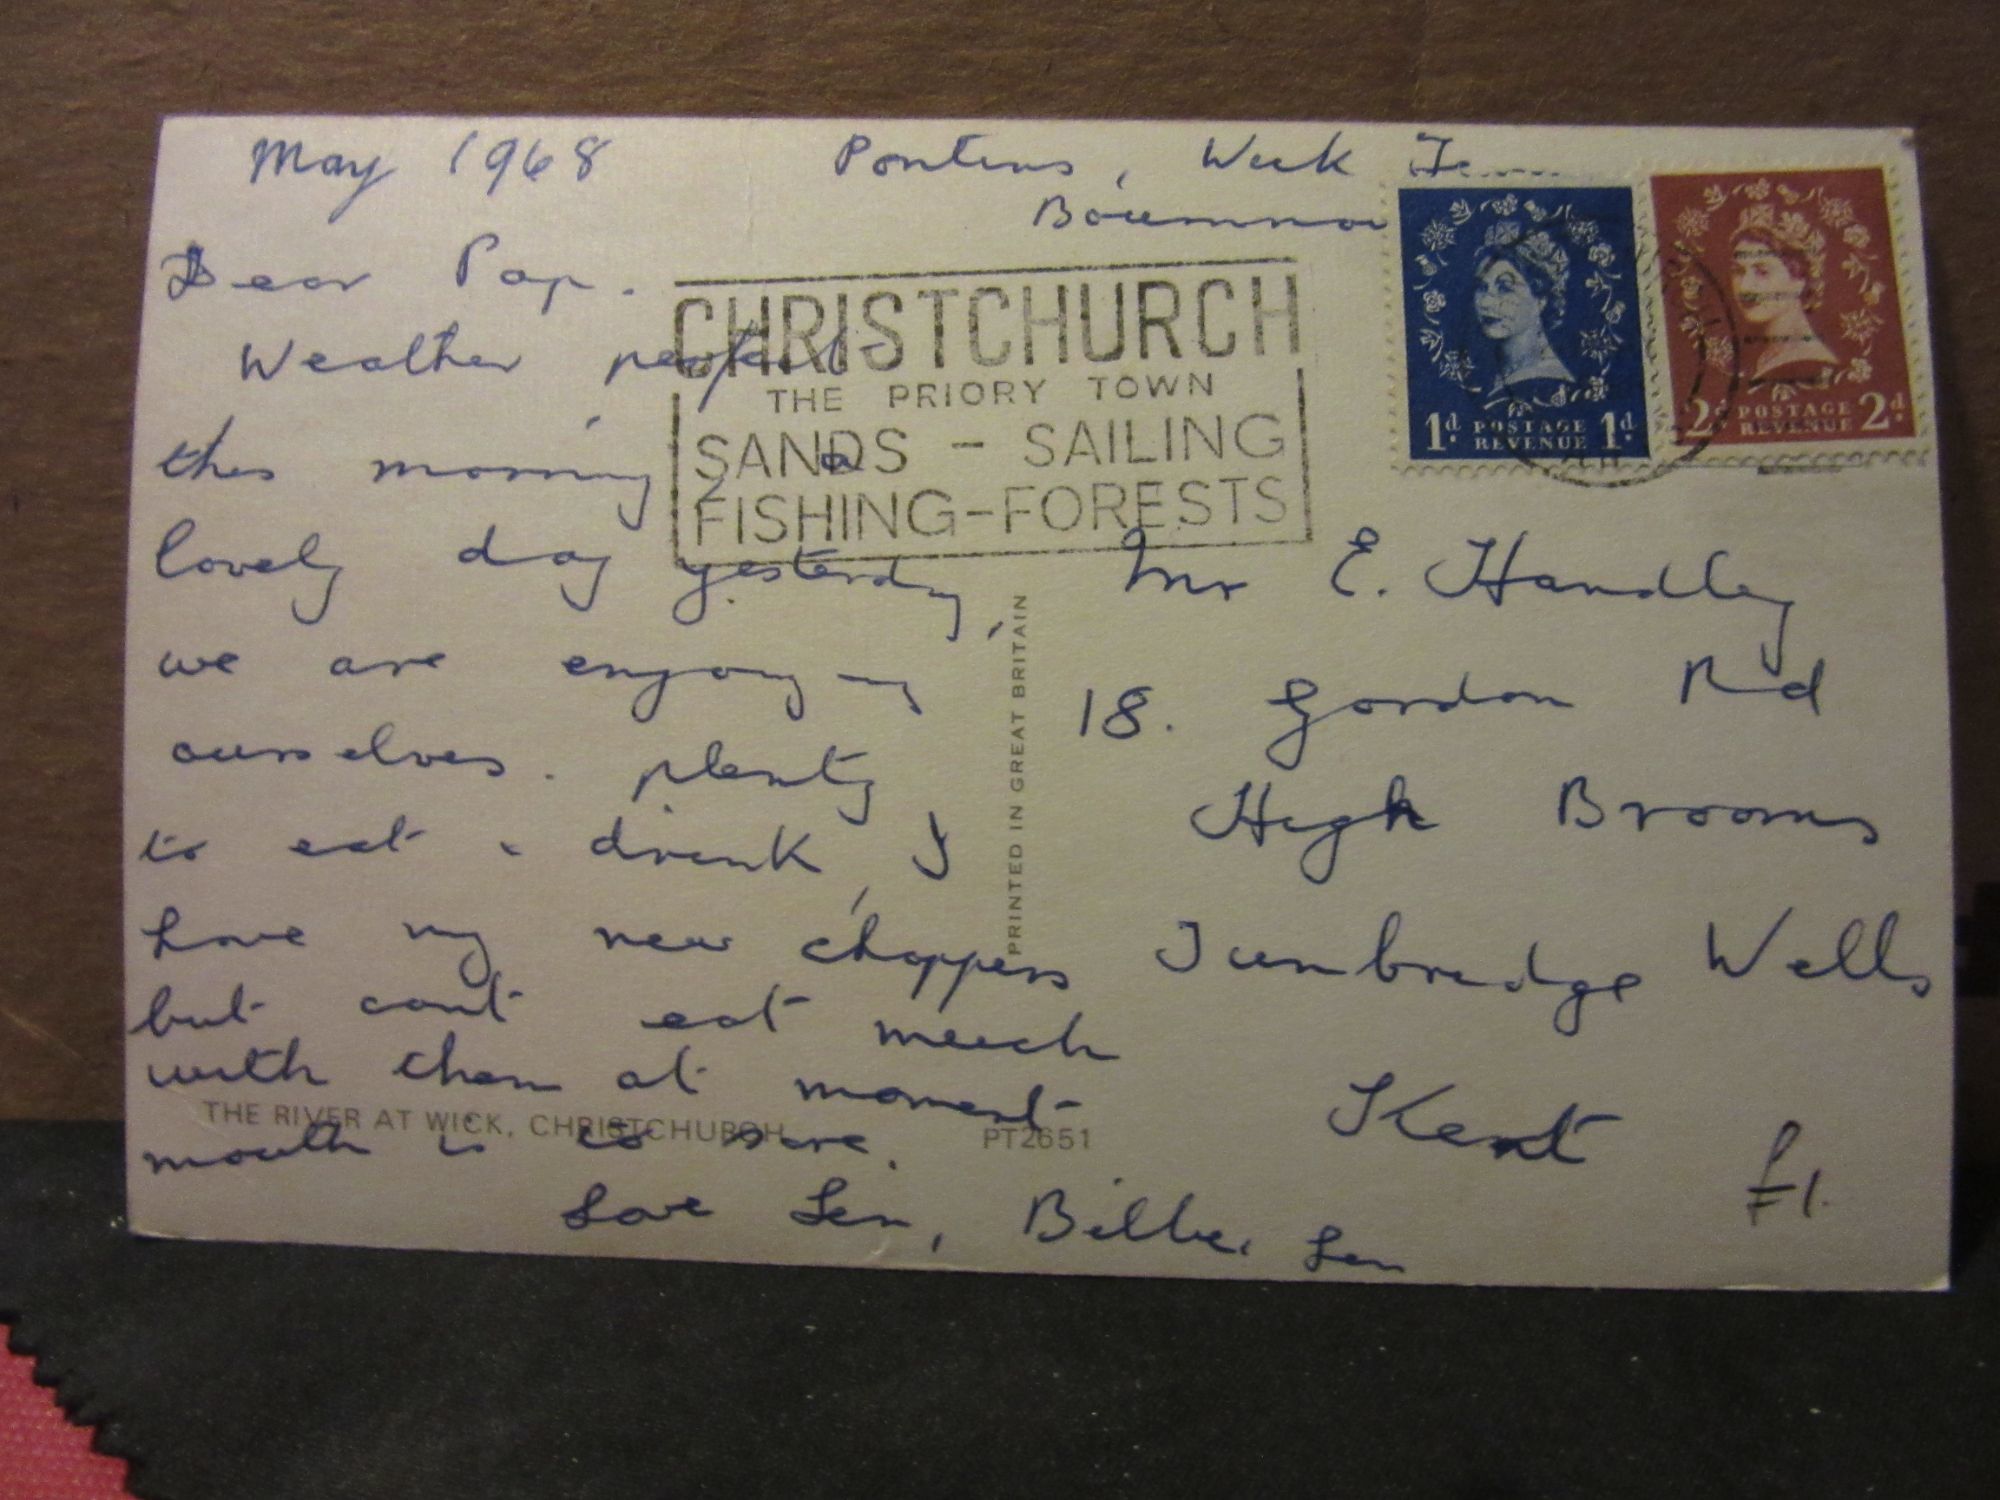 May 1968
Pontins, Week
Dear Pop.
Weather perfect
this morning, a
lovely day yesterday,
we are enjoying
ourselves. plenty
to eat & drink, I
have my new choppers
but cant eat much
with them at moment
mouth is so sore.
Love Len, Billie, Len
CHRISTCHURCH
THE PRIORY TOWN
SANDS - SAILING
FISHING-FORESTS
1d. POSTAGE REVENUE 1d.
2d. POSTAGE REVENUE 2d.
PRINTED IN GREAT BRITAIN
Mr E. Handley
18. Gordon Rd
High Brooms
Tunbridge Wells
Kent
£1.
THE RIVER AT WICK, CHRISTCHURCH
PT2651